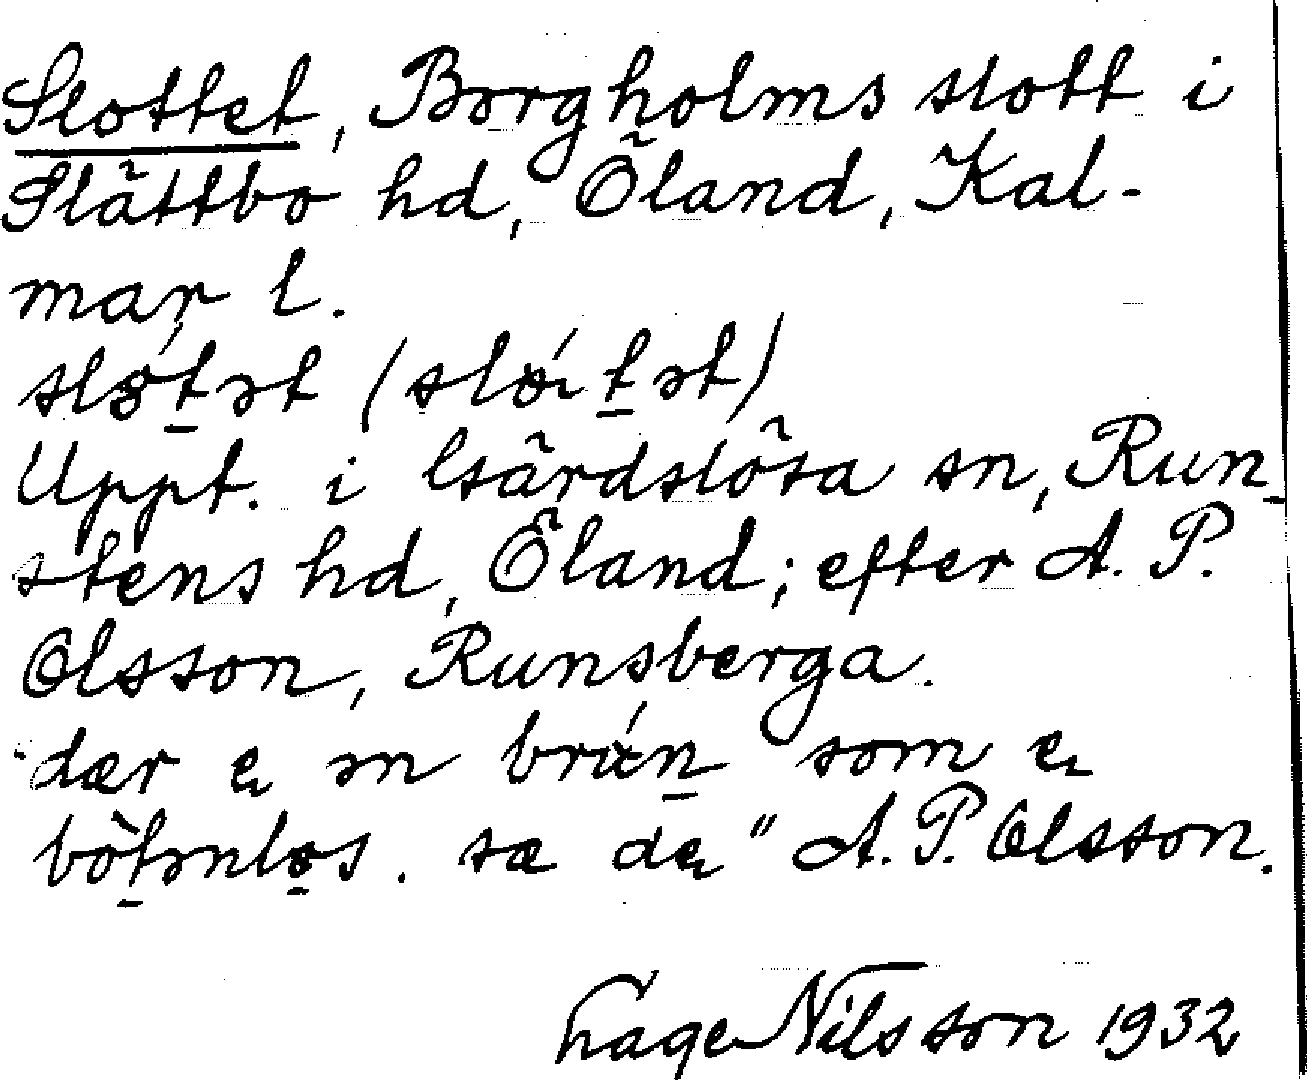 Slottet, Borgholms slott i
Slättbo hd, Öland, Kal-
mar l.
slɵ́t̲ət (slɵ́ı t̲ət)
Uppt. i Gärdslösa sn, Run-
stens hd, Öland; efter A. P.
Olsson, Runsberga.
"dær e ən brún̲ som e
bòt̲ənlø̲s. sa de" A. P. Olsson.
Nilsson 1932